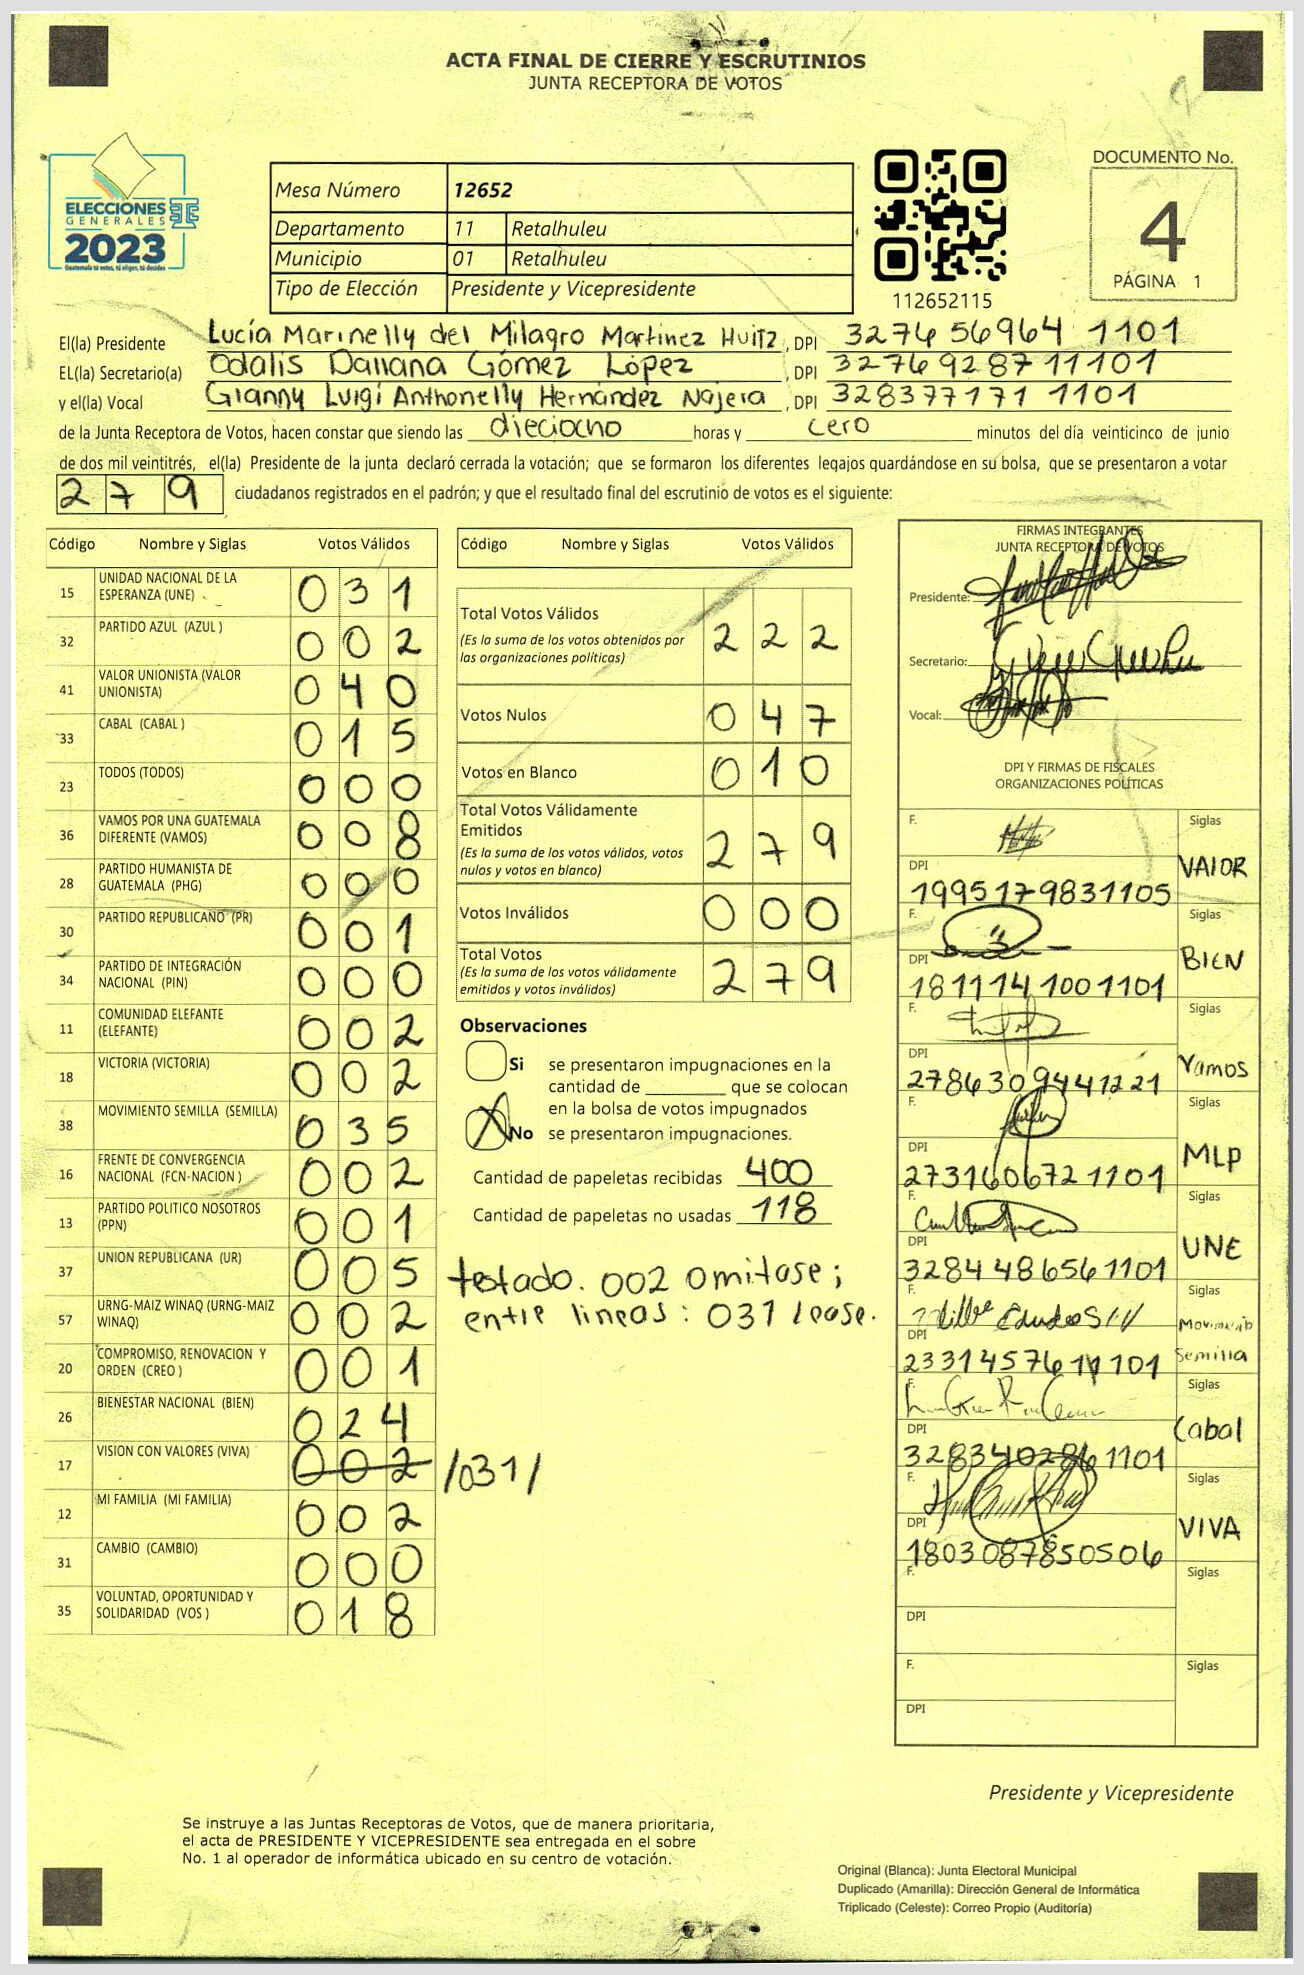 ACTA FINAL DE CIERRE Y ESCRUTINIOS
JUNTA RECEPTORA DE VOTOS
ELECCIONES
GENERALES
2023
Guatemala tú votas, tú eliges, tú decides
Mesa Número 12652
Departamento 11 Retalhuleu
Municipio 01 Retalhuleu
Tipo de Elección Presidente y Vicepresidente
112652115
DOCUMENTO No.
4
PÁGINA 1
El(la) Presidente Lucía Marinelly del Milagro Martinez Huitz, DPI 3276 56964 1101
EL(la) Secretario(a) Odalis Daliana Gómez López, DPI 3276928711101
y el(la) Vocal Gianny Luigi Anthonelly Hernández Nájera, DPI 328377171 1101
de la Junta Receptora de Votos, hacen constar que siendo las dieciocho horas y cero minutos del día veinticinco de junio
de dos mil veintitrés, el(la) Presidente de la junta declaró cerrada la votación; que se formaron los diferentes legajos guardándose en su bolsa, que se presentaron a votar
279 ciudadanos registrados en el padrón; y que el resultado final del escrutinio de votos es el siguiente:
Código Nombre y Siglas Votos Válidos
15 UNIDAD NACIONAL DE LA ESPERANZA (UNE) 031
32 PARTIDO AZUL (AZUL ) 002
41 VALOR UNIONISTA (VALOR UNIONISTA) 040
33 CABAL (CABAL ) 015
23 TODOS (TODOS) 000
36 VAMOS POR UNA GUATEMALA DIFERENTE (VAMOS) 008
28 PARTIDO HUMANISTA DE GUATEMALA (PHG) 000
30 PARTIDO REPUBLICANO (PR) 001
34 PARTIDO DE INTEGRACIÓN NACIONAL (PIN) 000
11 COMUNIDAD ELEFANTE (ELEFANTE) 002
18 VICTORIA (VICTORIA) 002
38 MOVIMIENTO SEMILLA (SEMILLA) 035
16 FRENTE DE CONVERGENCIA NACIONAL (FCN-NACION ) 002
13 PARTIDO POLITICO NOSOTROS (PPN) 001
37 UNION REPUBLICANA (UR) 005
57 URNG-MAIZ WINAQ (URNG-MAIZ WINAQ) 002
20 COMPROMISO, RENOVACION Y ORDEN (CREO ) 001
26 BIENESTAR NACIONAL (BIEN) 024
17 VISION CON VALORES (VIVA) 002 /031/
12 MI FAMILIA (MI FAMILIA) 002
31 CAMBIO (CAMBIO) 000
35 VOLUNTAD, OPORTUNIDAD Y SOLIDARIDAD (VOS ) 018
Código Nombre y Siglas Votos Válidos
Total Votos Válidos 222
(Es la suma de los votos obtenidos por
las organizaciones políticas)
Votos Nulos 047
Votos en Blanco 010
Total Votos Válidamente
Emitidos 279
(Es la suma de los votos válidos, votos
nulos y votos en blanco)
Votos Inválidos 000
Total Votos 279
(Es la suma de los votos válidamente
emitidos y votos inválidos)
Observaciones
Si se presentaron impugnaciones en la
cantidad de ________ que se colocan
en la bolsa de votos impugnados
X No se presentaron impugnaciones.
Cantidad de papeletas recibidas 400
Cantidad de papeletas no usadas 118
testado. 002 omitase;
entre líneas: 031 lease.
FIRMAS INTEGRANTES
JUNTA RECEPTORA DE VOTOS
Presidente:
Secretario:
Vocal:
DPI Y FIRMAS DE FISCALES
ORGANIZACIONES POLÍTICAS
F. Siglas
DPI 1995179831105 VALOR
F. Siglas
DPI 1811141001101 BIEN
F. Siglas
DPI 2786309441221 Vamos
F. Siglas
DPI 2731606721101 MLP
F. Siglas
DPI 3284486561101 UNE
F. Siglas
DPI 2331457611101 Movimiento Semilla
F. Siglas
DPI 3283402861101 Cabal
F. Siglas
DPI 1803087850506 VIVA
F. Siglas
DPI
F. Siglas
DPI
Presidente y Vicepresidente
Se instruye a las Juntas Receptoras de Votos, que de manera prioritaria,
el acta de PRESIDENTE Y VICEPRESIDENTE sea entregada en el sobre
No. 1 al operador de informática ubicado en su centro de votación.
Original (Blanca): Junta Electoral Municipal
Duplicado (Amarilla): Dirección General de Informática
Triplicado (Celeste): Correo Propio (Auditoría)